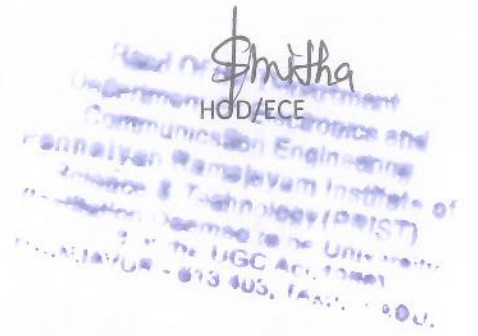 Smitha
HOD/ECE
Head of Department
Department Electronics and
Communication Engineering
Ponnaiyah Ramajayam Institute of
Science & Technology (PRIST)
Institution Deemed to be University
the UGC Act,
- 613 403,